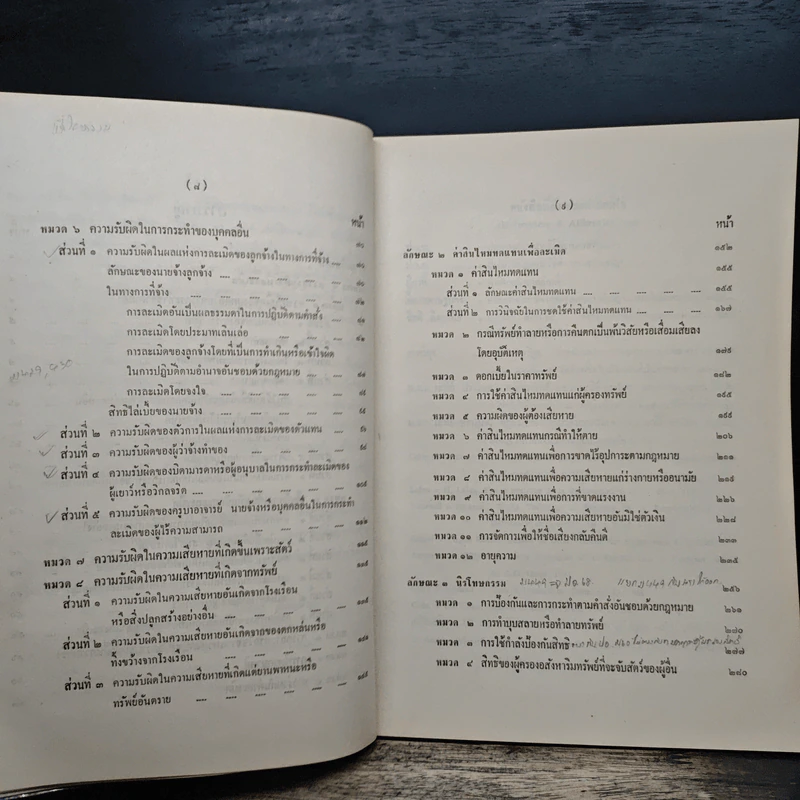 (๘)
หน้า
หมวด ๖ ความรับผิดในการกระทำของบุคคลอื่น
ส่วนที่ ๑ ความรับผิดในผลแห่งการละเมิดของลูกจ้างในทางการที่จ้าง
ลักษณะของนายจ้างลูกจ้าง .... ....
ในทางการที่จ้าง .... .... .... ....
การละเมิดอันเป็นผลธรรมดาในการปฏิบัติตามคำสั่ง ....
การละเมิดโดยประมาทเลินเล่อ .... ....
การละเมิดของลูกจ้างโดยที่เป็นการทำเกินหรือเข้าใจผิด
ในการปฏิบัติตามอำนาจอันชอบด้วยกฎหมาย .... ....
การละเมิดโดยจงใจ .... .... ....
สิทธิไล่เบี้ยของนายจ้าง .... .... .... ....
ส่วนที่ ๒ ความรับผิดของตัวการในผลแห่งการละเมิดของตัวแทน ....
ส่วนที่ ๓ ความรับผิดของผู้ว่าจ้างทำของ .... ....
ส่วนที่ ๔ ความรับผิดของบิดามารดาหรือผู้อนุบาลในการกระทำละเมิดของ
ผู้เยาว์หรือวิกลจริต .... .... .... ....
ส่วนที่ ๕ ความรับผิดของครูบาอาจารย์ นายจ้างหรือบุคคลอื่นในการกระทำ
ละเมิดของผู้ไร้ความสามารถ .... .... ....
หมวด ๗ ความรับผิดในความเสียหายที่เกิดขึ้นเพราะสัตว์
หมวด ๘ ความรับผิดในความเสียหายที่เกิดจากทรัพย์
ส่วนที่ ๑ ความรับผิดในความเสียหายอันเกิดจากโรงเรือน
หรือสิ่งปลูกสร้างอย่างอื่น .... .... ....
ส่วนที่ ๒ ความรับผิดในความเสียหายอันเกิดจากของตกหล่นหรือ
ทิ้งขว้างจากโรงเรือน .... .... .... ....
ส่วนที่ ๓ ความรับผิดในความเสียหายที่เกิดแต่ยานพาหนะหรือ
ทรัพย์อันตราย .... .... .... ....
(๙)
หน้า
ลักษณะ ๒ ค่าสินไหมทดแทนเพื่อละเมิด ๑๕๒
หมวด ๑ ค่าสินไหมทดแทน ๑๕๕
ส่วนที่ ๑ ลักษณะค่าสินไหมทดแทน .... .... .... ๑๕๕
ส่วนที่ ๒ การวินิจฉัยในการชดใช้ค่าสินไหมทดแทน .... .... ๑๖๗
หมวด ๒ กรณีทรัพย์ทำลายหรือการคืนตกเป็นพ้นวิสัยหรือเสื่อมเสียลง
โดยอุบัติเหตุ ๑๗๘
หมวด ๓ ดอกเบี้ยในราคาทรัพย์ ๑๘๒
หมวด ๔ การใช้ค่าสินไหมทดแทนแก่ผู้ครองทรัพย์
หมวด ๕ ความผิดของผู้ต้องเสียหาย
หมวด ๖ ค่าสินไหมทดแทนกรณีทำให้ตาย ๒๐๖
หมวด ๗ ค่าสินไหมทดแทนเพื่อการขาดไร้อุปการะตามกฎหมาย ๒๑๑
หมวด ๘ ค่าสินไหมทดแทนเพื่อความเสียหายแก่ร่างกายหรืออนามัย
หมวด ๙ ค่าสินไหมทดแทนเพื่อการที่ขาดแรงงาน ๒๒๖
หมวด ๑๐ ค่าสินไหมทดแทนเพื่อความเสียหายอันมิใช่ตัวเงิน ๒๒๘
หมวด ๑๑ การจัดการเพื่อให้ชื่อเสียงกลับคืนดี ๒๓๓
หมวด ๑๒ อายุความ ๒๓๕
ลักษณะ ๓ นิรโทษกรรม ๒๕๖
หมวด ๑ การป้องกันและการกระทำตามคำสั่งอันชอบด้วยกฎหมาย ๒๖๑
หมวด ๒ การทำบุบสลายหรือทำลายทรัพย์ ๒๗๐
หมวด ๓ การใช้กำลังป้องกันสิทธิ ๒๗๗
หมวด ๔ สิทธิของผู้ครองอสังหาริมทรัพย์ที่จะจับสัตว์ของผู้อื่น ๒๘๐